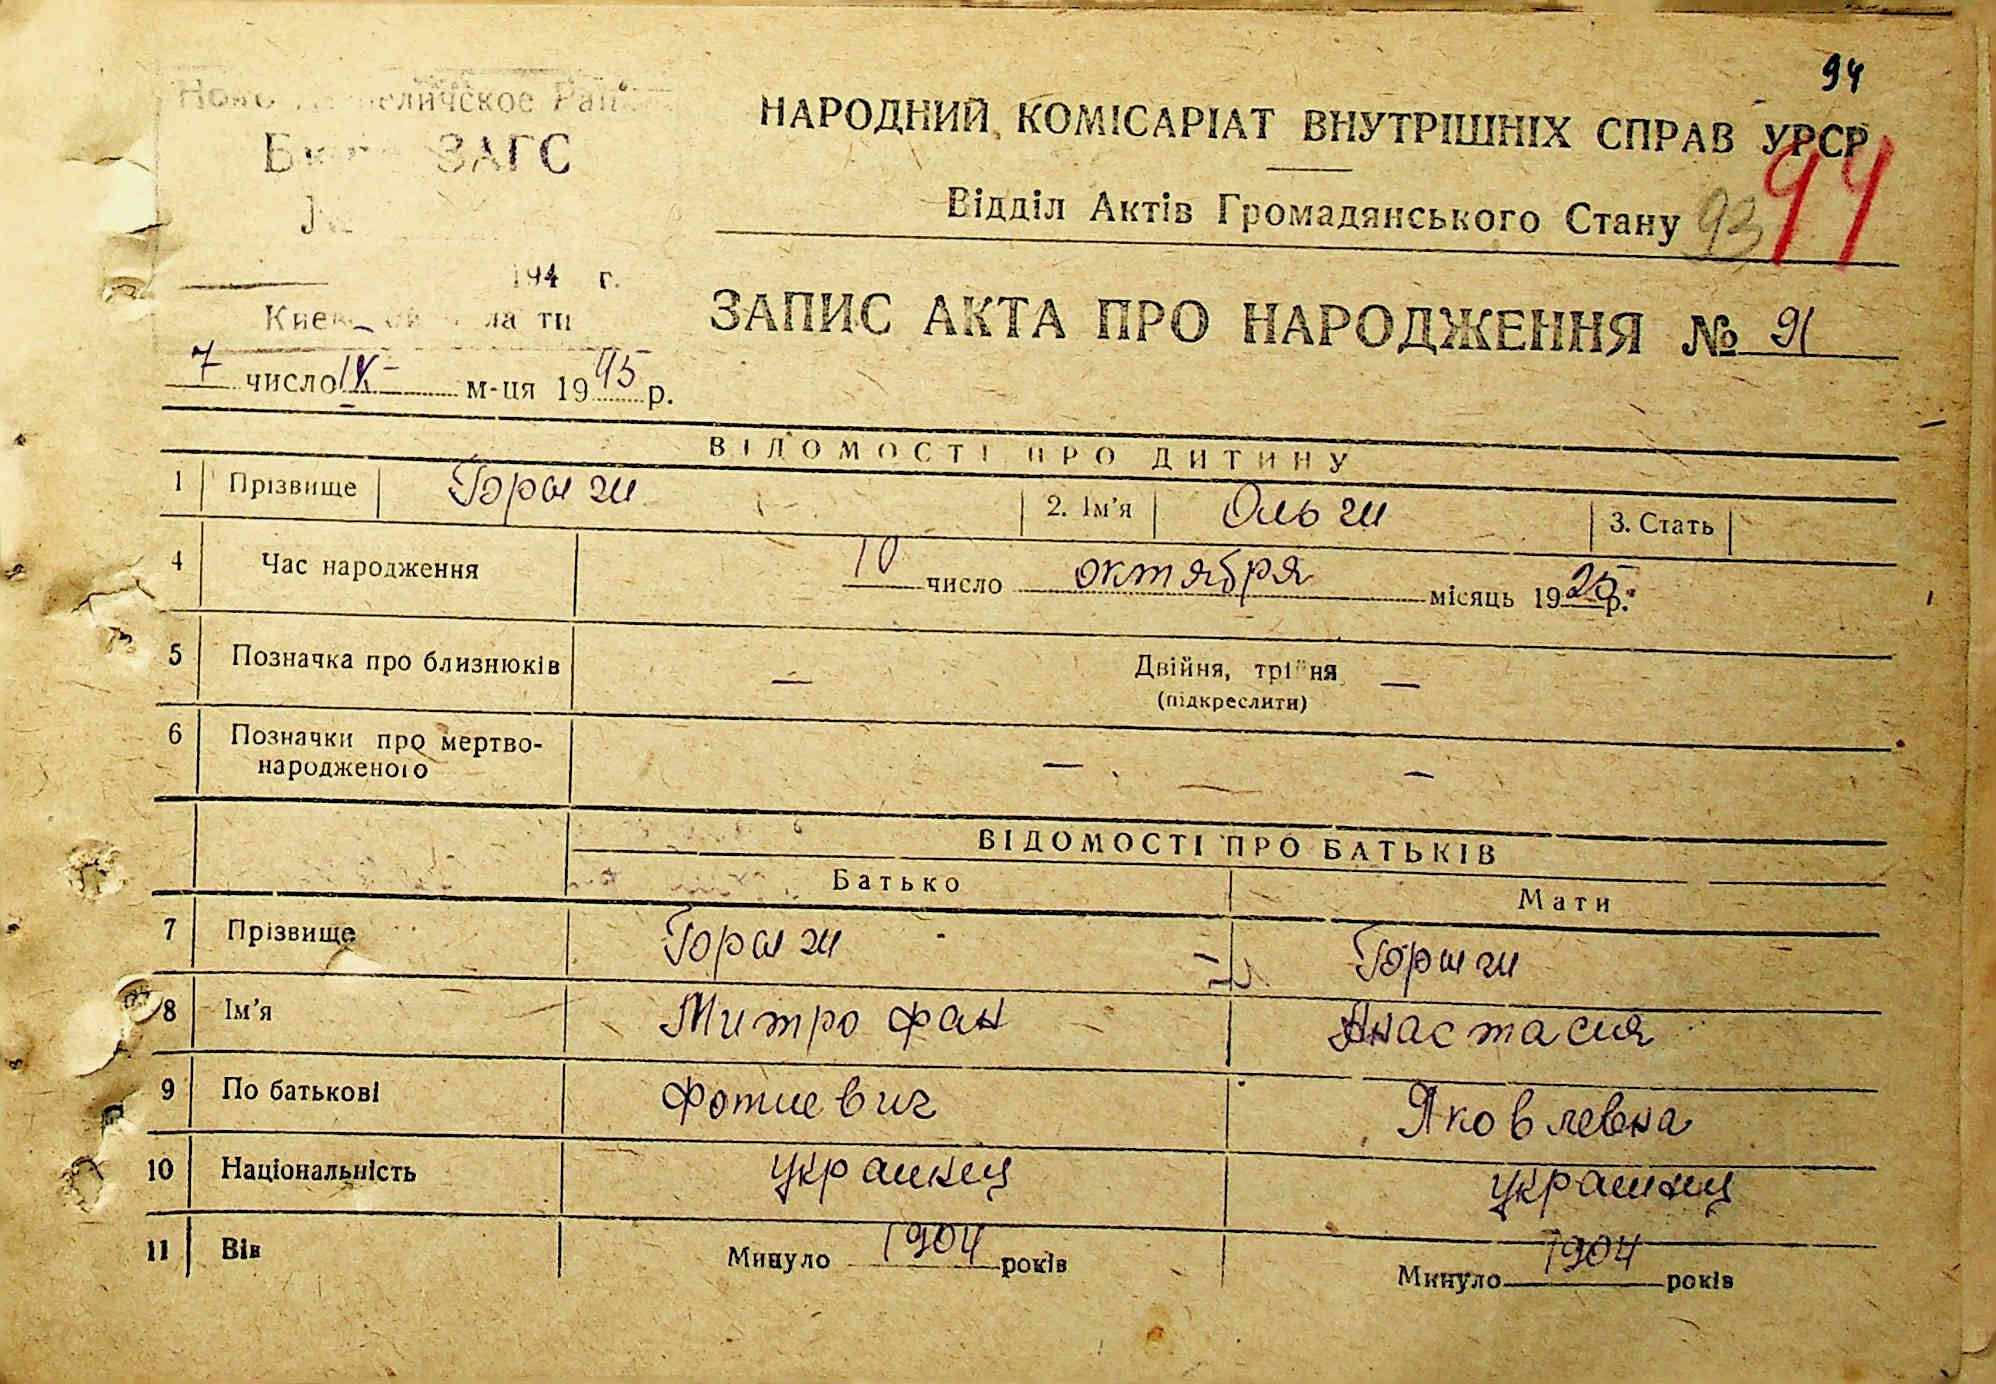 94
ЗАГС
194 г.
НАРОДНИЙ КОМІСАРІАТ ВНУТРІШНІХ СПРАВ УРСР
94
Відділ Актів Громадянського Стану 93
ЗАПИС АКТА ПРО НАРОДЖЕННЯ № 91
7 число IX м-ця 1945 р.
ВІДОМОСТІ ПРО ДИТИНУ
1 Прізвище 2. Ім'я 3. Стать
4 Час народження 10 число октября місяць 1925 р.
5 Позначка про близнюків — Двійня, трійня —
(підкреслити)
6 Позначки про мертво- — —
народженого
ВІДОМОСТІ ПРО БАТЬКІВ
Батько Мати
7 Прізвище
8 Ім'я Митрофан Анастасия
9 По батькові Фотиевич Яковлевна
10 Національність украинец украинец
11 Вік Минуло 1904 років Минуло 1904 років